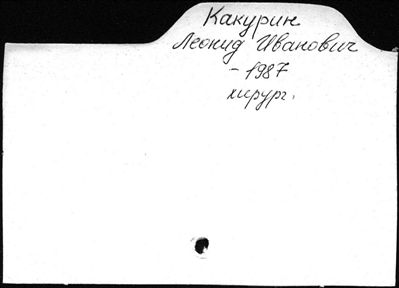 Какурин
Леонид Иванович
- 1987
хирург.